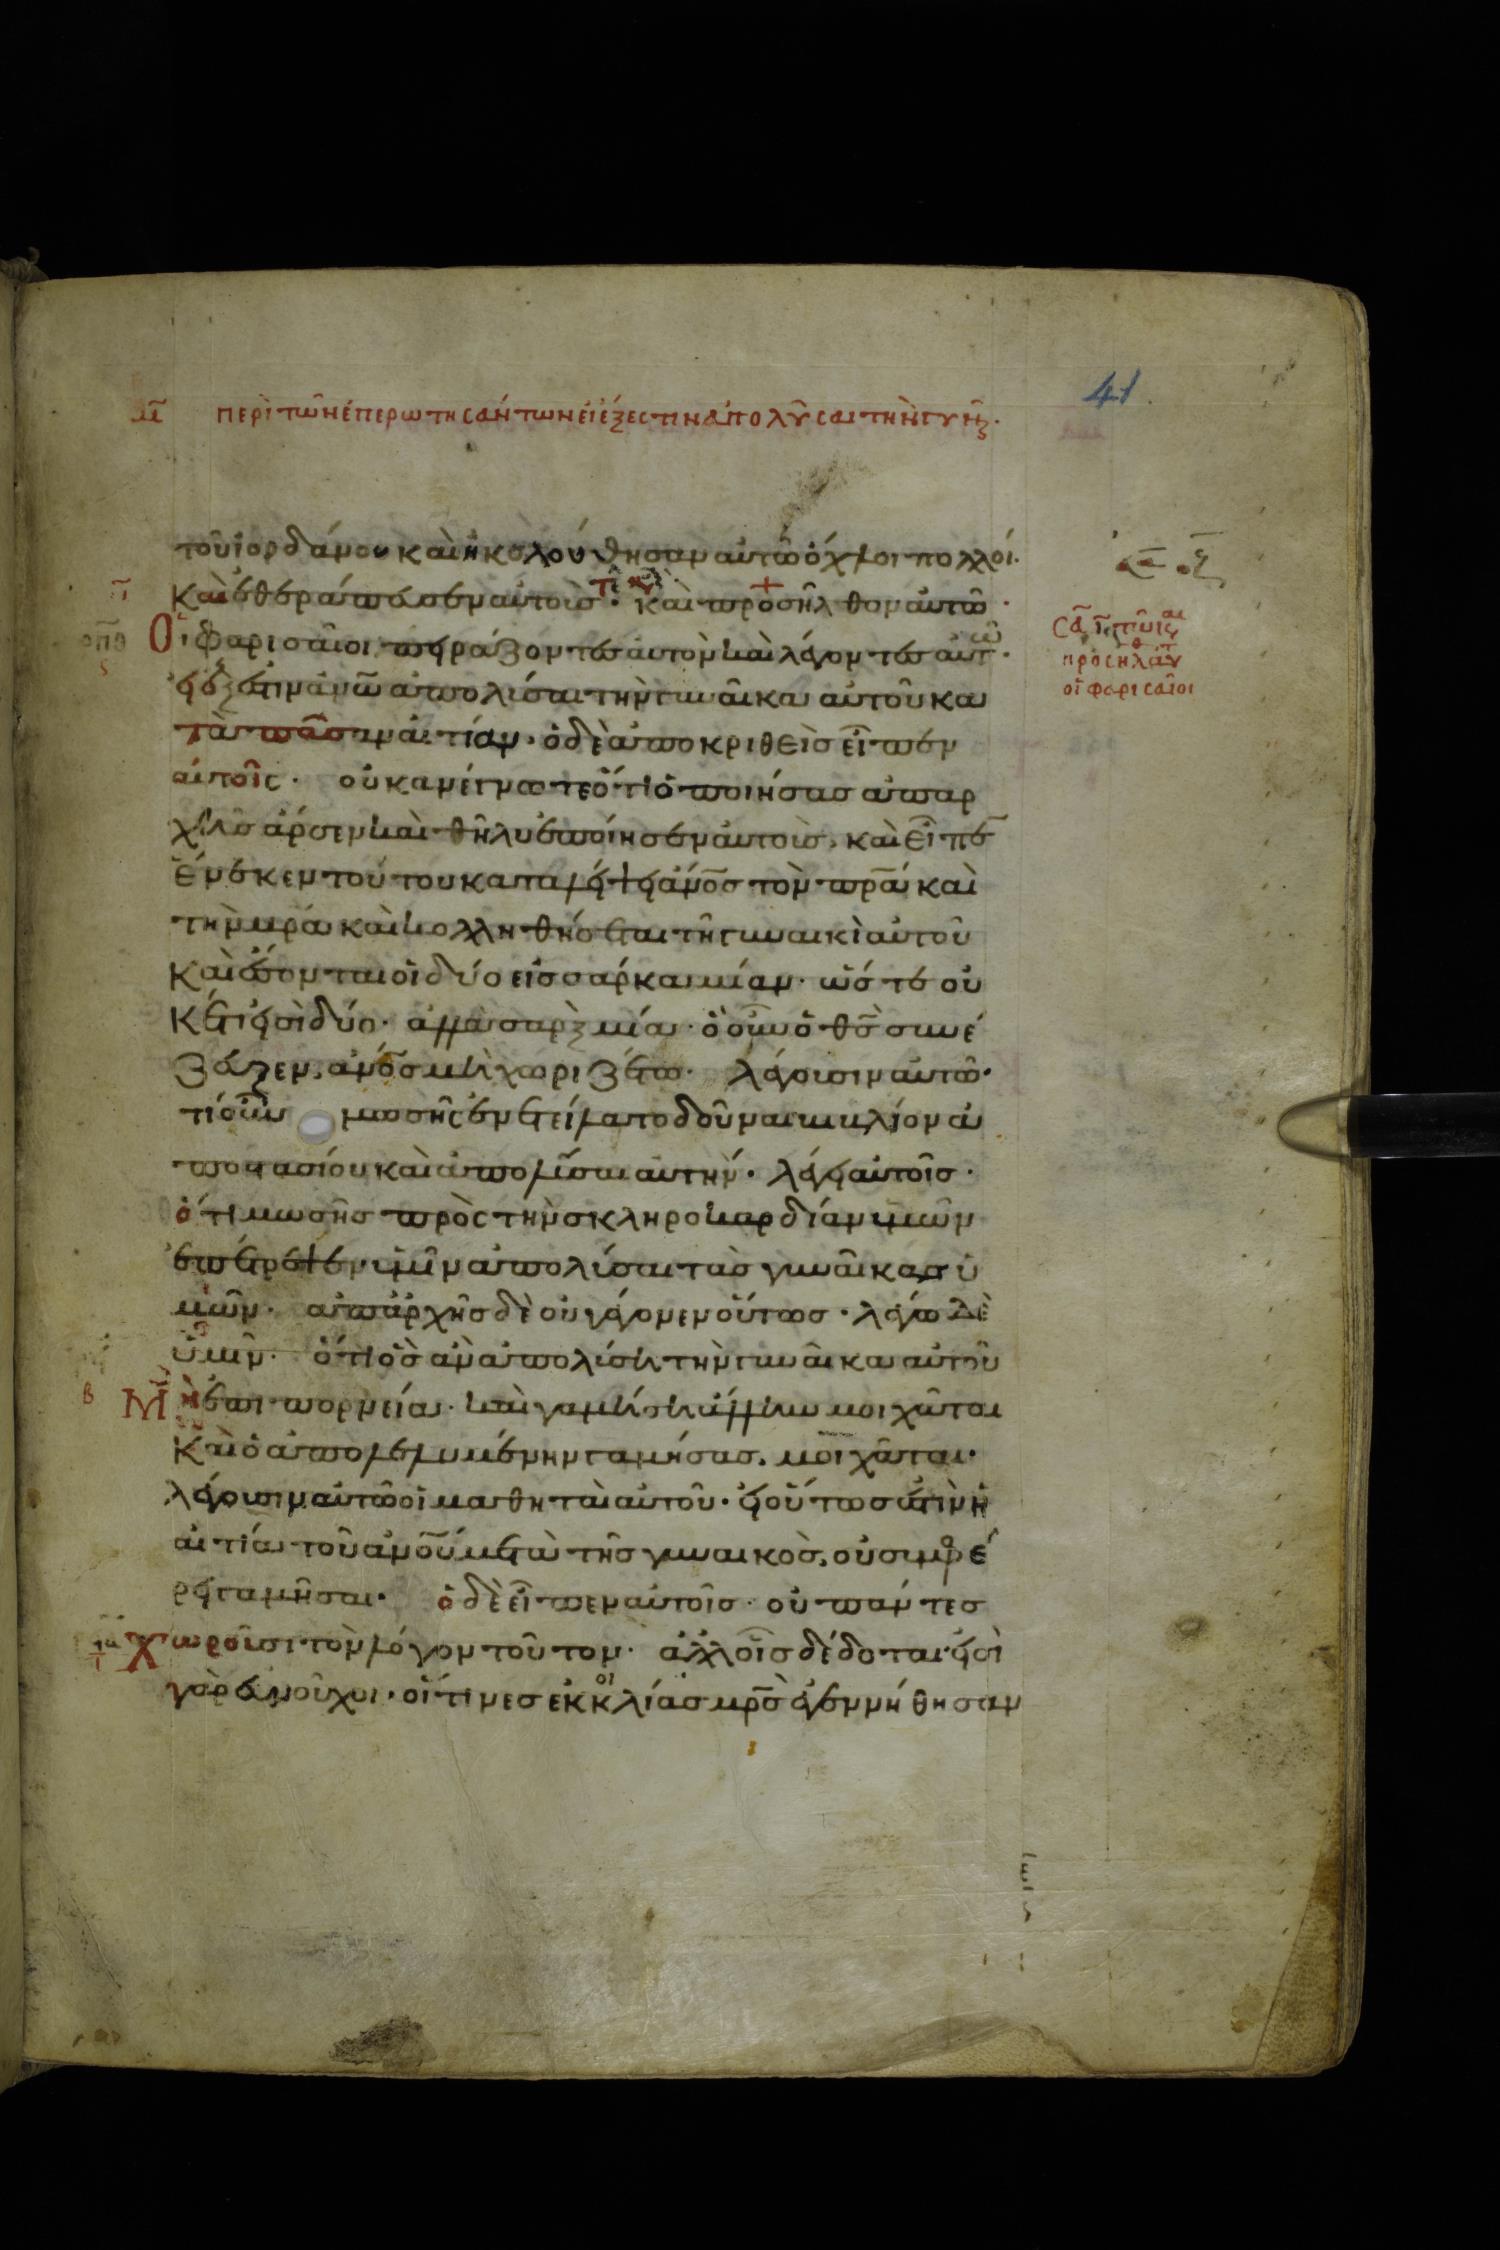 41
περὶ τῶν ἐπερωτησάντων εἰ ἔξεστιν ἀπολῦσαι τὴν γυν
τοῦ ἰορδάνου καὶ ἠκολούθησαν αὐτῶ ὄχλοι πολλοί·
καὶ ἐθεράπευσεν αὐτοὺς· καὶ προσῆλθον αὐτῶ·
Οἱ φαρισαῖοι πειράζοντες αὐτὸν καὶ λέγοντες αὐτῶ·
εἰ ἔξεστιν ἀνῶ ἀπολύσαι τὴν γυναῖκα αὐτοῦ κα
τὰ πᾶσαν αἰτίαν· ὁ δὲ ἀποκριθεὶς εἶπεν
αὐτοῖς· οὐκ ἀνέγνωτε ὅτι ὁ ποιήσας ἀπαρ
χῆς ἄρσεν καὶ θῆλυ ἐποίησεν αὐτοὺς, καὶ εἶπε
ἕνεκεν τούτου καταλείψει ἄνος τὸν πρα καὶ
τὴν μρα καὶ κολληθήσεται τῆ γυναικὶ αὐτοῦ
καὶ ἔσονται οἱ δύο εἰς σάρκα μίαν· ὥστε οὐ
κέτι εἰσὶ δύο· ἀλλὰ σαρξ μία· ὃ οὖν ὁ θς συνέ
ζευξεν, ἄνος μὴ χωριζέτω· λέγουσιν αὐτῶ·
τί οὖν μωσῆς ἐνετείλατο δοῦναι βιβλίον ἀ
ποστασίου καὶ ἀπολύσαι αὐτήν· λέγει αὐτοῖς·
ὅτι μωσῆς πρὸς τὴν σκληροκαρδίαν ὑμῶν
ἐπέτρεψεν ὑμῖν ἀπολύσαι τὰς γυναῖκας ὑ
μῶν· ἀπἀρχῆς δὲ οὐ γέγονεν οὕτως· λέγω δὲ
ὑμῖν· ὅτι ὃς ἂν ἀπολύση τὴν γυναῖκα αὐτοῦ
Μὴ ἐπι πορνεία· καὶ γαμήση ἄλλην μοιχᾶται
καὶ ὁ ἀπολελυμένην γαμήσας, μοιχᾶται·
λέγουσιν αὐτῶ οἱ μαθηταὶ αὐτοῦ· εἰ οὕτως ἐστὶν ἡ
αἰτία τοῦ ἀνου μετὰ τῆς γυναικὸς, οὐ συμφέ
ρει γαμῆσαι· ὁ δὲ εἶπεν αὐτοῖς· οὐ πάντες
Χωροῦσι τὸν λόγον τοῦτον· ἀλλ οἷς δέδοται· εἰσὶ
γὰρ εὐνοῦχοι· οἵτινες ἐκ κοιλίας μρς ἐγεννήθησαν
προσηλθ
οἱ φαρισαῖοι